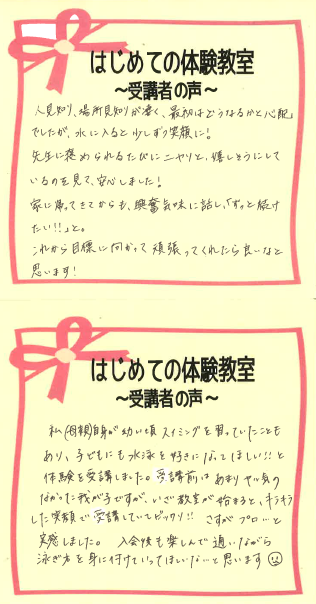 はじめての体験教室
～受講者の声～
人見知り、場所見知りが凄く、最初はどうなるかと心配
でしたが、水に入ると少しずつ笑顔に!
先生に褒められるたびにニヤリと、嬉しそうにして
いるのを見て、安心しました!
家に帰ってきてからも、興奮気味に話し、「ずっと続け
たい!!」と。
これから目標に向かって頑張ってくれたら良いなと
思います!
はじめての体験教室
～受講者の声～
私(母親)自身が幼い頃スイミングを習っていたことも
あり、子どもにも水泳を好きになってほしい!!と
体験を受講しました。受講前はあまりヤル気の
なかった我が子ですが、いざ教室が始まると、キラキラ
した笑顔で受講していてビックリ!! さすがプロ…と
実感しました。 入会後も楽しんで通いながら
泳ぎ方を身に付けていってほしいなと思います